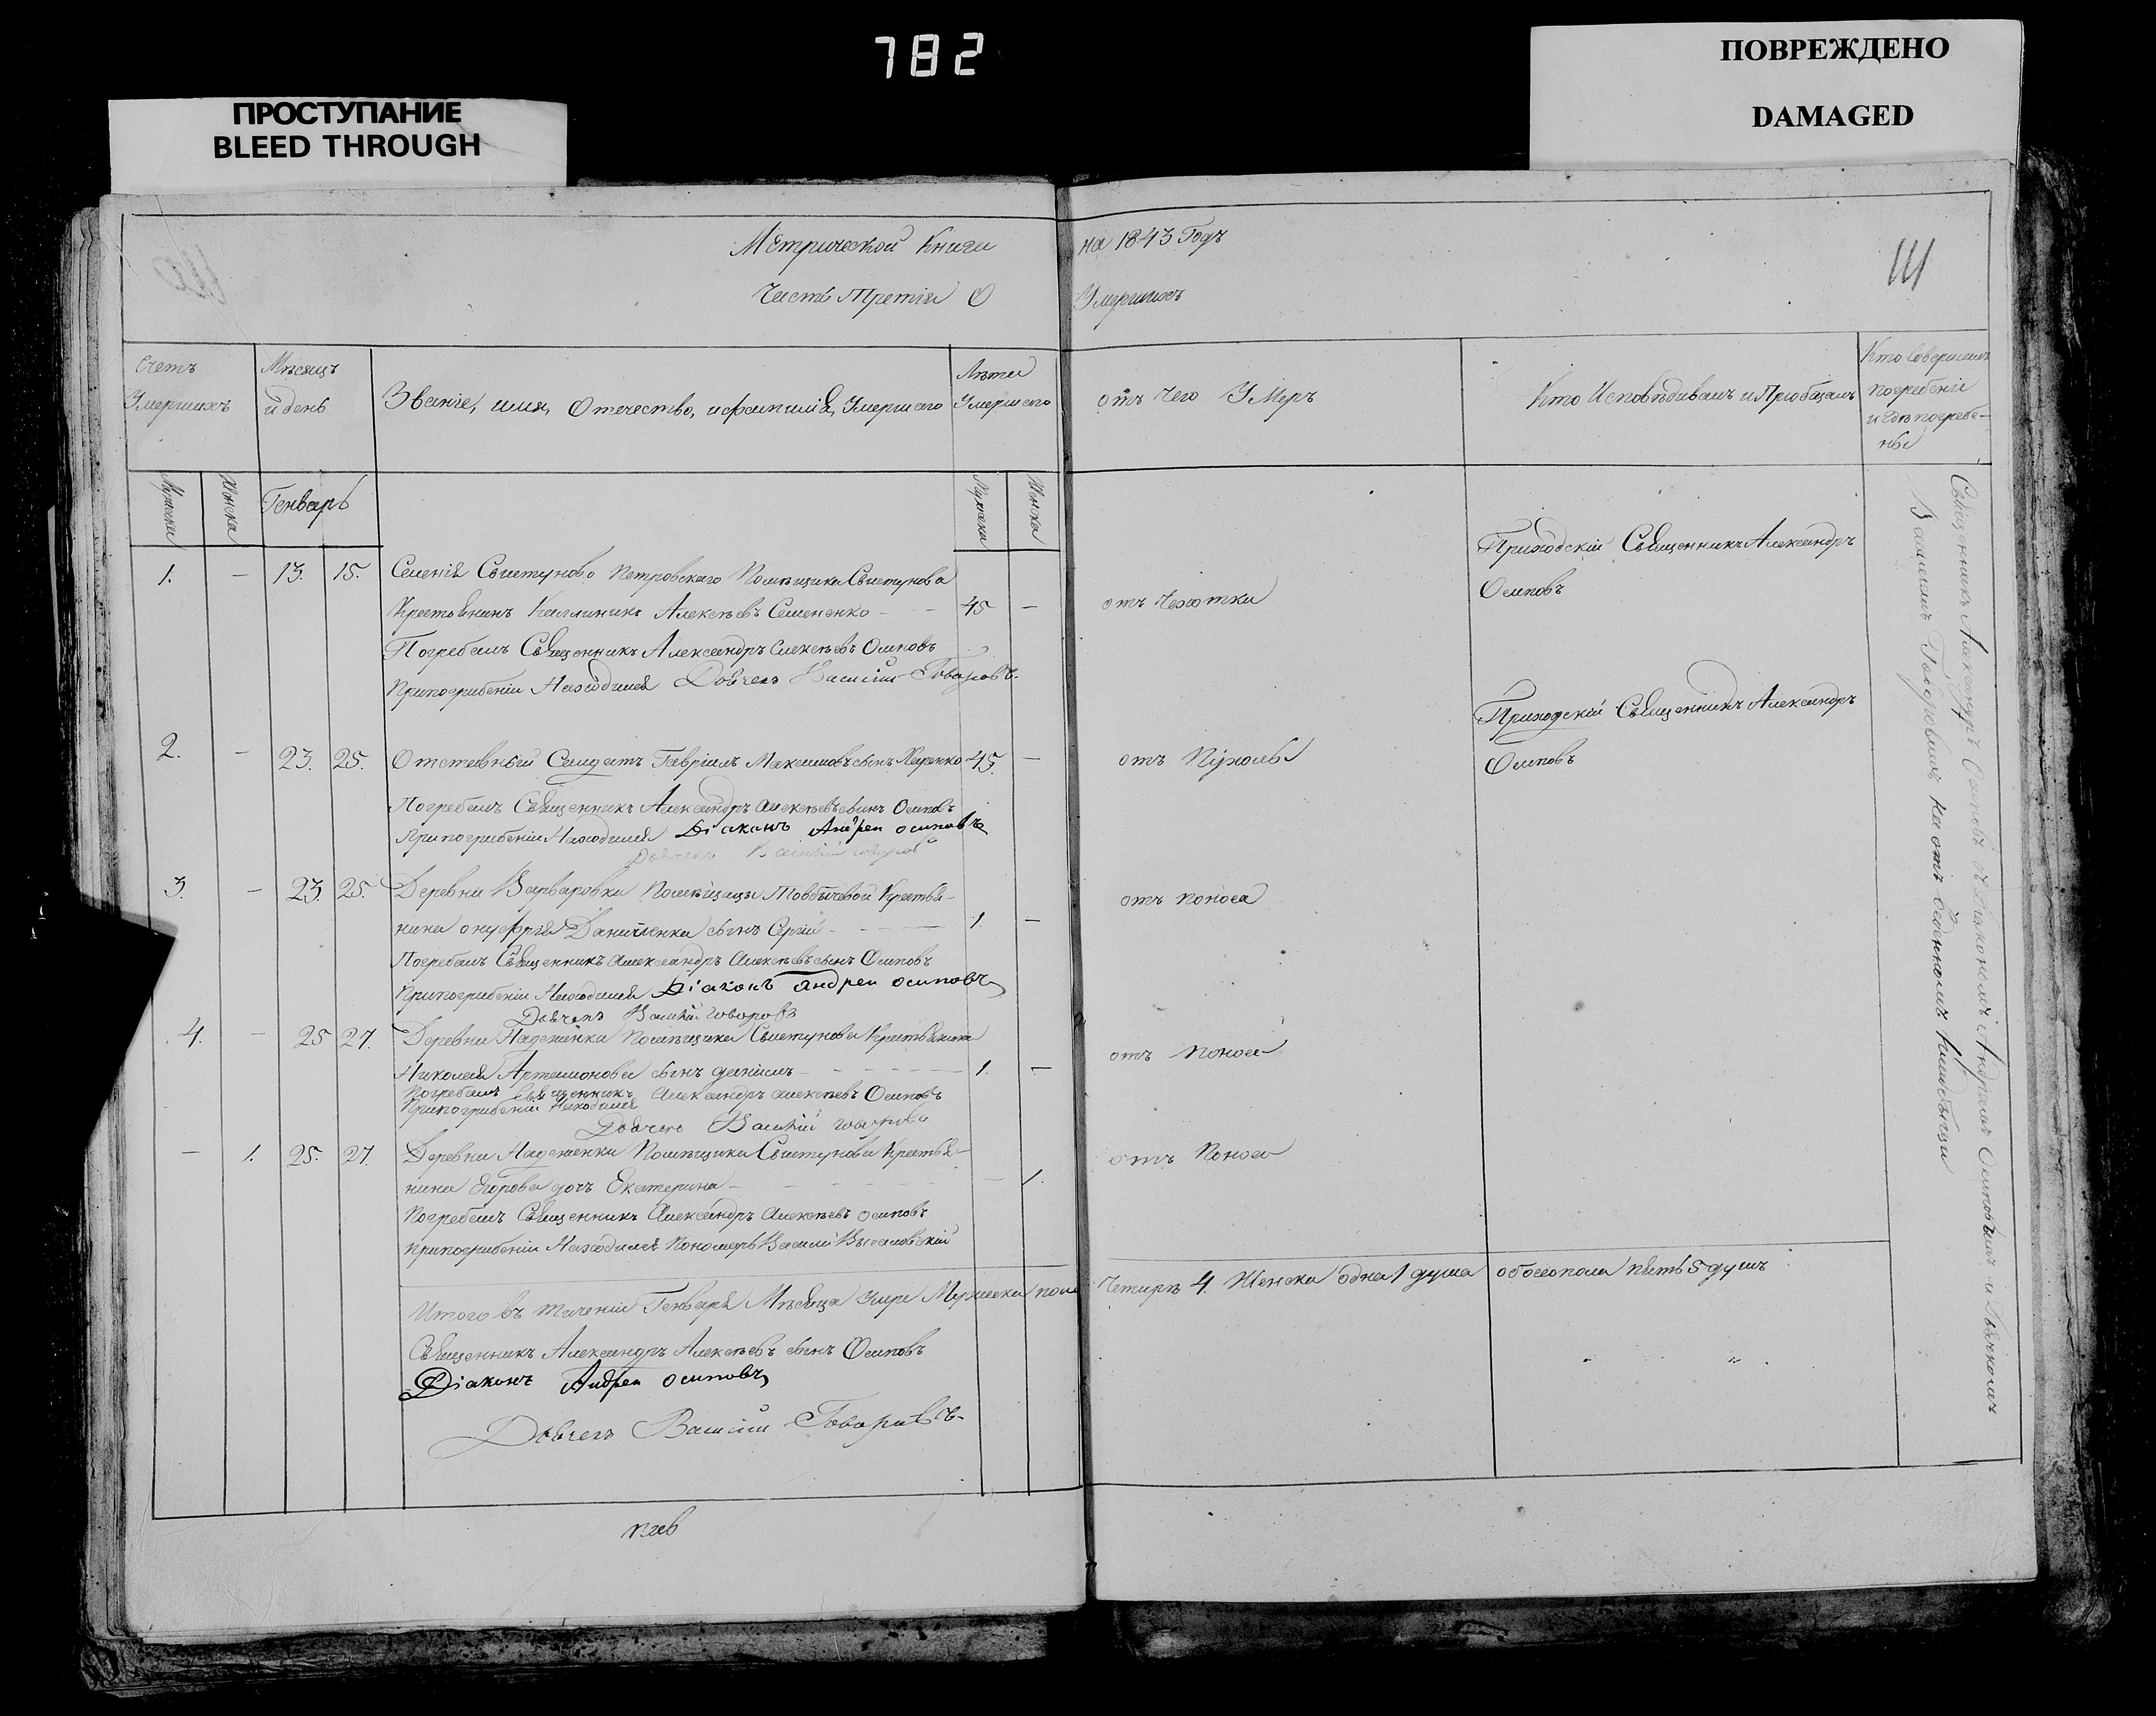 782
ПРОСТУПАНИЕ
BLEED THROUGH
ПОВРЕЖДЕНО
DAMAGED
Метрической Книги на 1843 Годъ
Часть Третія О Умершихъ
111
Счетъ Умершихъ
Мѣсяцъ и день
Званіе, имя, Отечество, и фамилія, Умершаго
Лѣта Умершаго
отъ Чего Умеръ
Кто Исповѣдивалъ и Пріобщалъ
Кто Совершалъ погребеніе и гдѣ погребены
Мужеска
Женска
Генварь
Мужеска
Женска
1. — 13. 15. Селенія Свистуново Петровскаго Помѣщика Свистунова
Крестьянинъ Алексѣевъ Семененко — 45 — отъ Чехотки
Приходскій Священникъ Александръ
Осиповъ
Погребалъ Священникъ Александръ Алексѣевъ Осиповъ
Припогрибеніи Находился Дьячекъ Василій Говоровъ
2. — 23. 25. Отставный Салдатъ Гавріилъ Максимовъ сынъ 45. —
Приходскій Священникъ Александръ
Осиповъ
Погребалъ Священникъ Александръ Алексѣевъ сынъ Осиповъ
Припогрибеніи Находился Діаконъ Андрей осиповъ
Дьячекъ Василій Говоровъ
3. — 23. 25. Деревни Варваровки Помѣщицы Крестья-
отъ поноса
нина онуфрія Даниленка сынъ Сергій — 1. —
Погребалъ Священникъ Александръ Алексѣевъ сынъ Осиповъ
Припогрибеніи Находился Діаконъ Андрей осиповъ
Дьячекъ Василій Говоровъ
4. — 25 27. Деревни Надеженки Помѣщика Свистунова Крестьянина
отъ поноса
Николая Артамонова сынъ даніилъ — 1. —
Погребалъ Священникъ Александръ Алексѣевъ Осиповъ
Припогрибеніи Находился
Дьячекъ Василій Говоровъ
— 1. 25. 27. Деревни Надеженки Помѣщика Свистунова Крестья-
отъ Поноса
нина Егорова дочь Екатерина — 1.
Погребалъ Священникъ Александръ Алексѣевъ осиповъ
Припогрибеніи Находился Пономарь Василій
Итого въ теченіи Генваря Мѣсяца умре Мужеска пола Четырѣ 4. Женска одна 1 душа обоего пола пять 5 душъ
Священникъ Александръ Алексѣевъ сынъ Осиповъ
Діаконъ Андрей осиповъ
Дьячекъ Василій Говоровъ
Священникъ Александръ Осиповъ съ Діакономъ Андреемъ Осиповымъ и Дьячкомъ
Василіемъ Говоровымъ на отъ веденомъ кладбищи